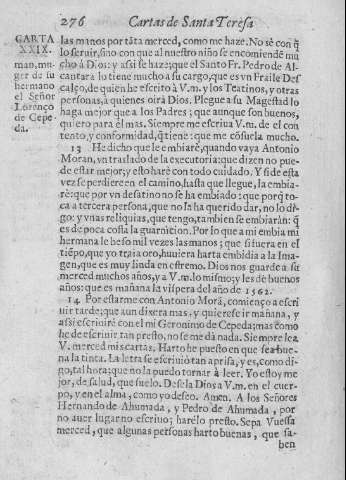 276 Cartas de Santa Teresa
CARTA
XXIX.
man, mu-
ger de su
hermano
el Señor
Lorenço
de Cepe-
da.
las manos por tãta merced, como me haze. No sè con q̃
lo seruir, sino con que al nuestro niño se encomiende mu
cho à Dios: y assi se haze; que el Santo Fr. Pedro de Al-
cantara lo tiene mucho a su cargo, que es vn Fraile Des
calço, de quien he escrito à V.m. y los Teatinos, y otras
personas, à quienes oirà Dios. Plegue a su Magestad lo
haga mejor que a los Padres; que aunque son buenos,
quiero para èl mas. Siempre me escriua V.m. de el con
tento, y conformidad, q̃ tiene: que me cõsuela mucho.
13 He dicho que le embiarè, quando vaya Antonio
Moran, vn traslado de la executoria: que dizen no pue-
de estar mejor; y esto harè con todo cuidado. Y si de esta
vez se perdiere en el camino, hasta que llegue, la embia-
rè: que por vn desatino no se ha embiado: que porq̃ to-
ca a tercera persona, que no la ha querido dar, no lo di-
go: y vnas reliquias, que tengo, tambien se embiaràn: q̃
es de poca costa la guarnicion. Por lo que a mi embia mi
hermana le beso mil vezes las manos; que si fuera en el
tiẽpo, que yo traia oro, huuiera harta embidia a la Ima-
gen, que es muy linda en estremo. Dios nos guarde a su
merced muchos años, y a V.m. lo mismo; y les dè buenos
años: que es mañana la vispera del año de 1562.
14. Por estarme con Antonio Morã, comienço a escri
uir tarde; que aun dixera mas, y quierese ir mañana, y
assi escriuirè con el mi Geronimo de Cepeda; mas como
he de escriuir tan presto, no se me dà nada. Siempre lea
V. merced mis cartas. Harto he puesto en que sea bue-
na la tinta. La letra se escriuiò tan aprisa, y es, como di-
go, tal hora; que no la puedo tornar à leer. Yo estoy me
jor, de salud, que suelo. Desela Dios a V.m. en el cuer-
po, y en el alma, como yo deseo. Amen. A los Señores
Hernando de Ahumada, y Pedro de Ahumada, por
no auer lugar no escriuo; harèlo presto. Sepa Vuessa
merced, que algunas personas harto buenas, que sa-
ben